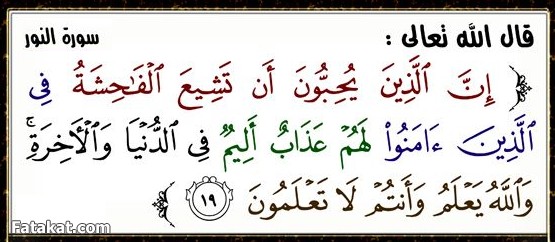 قال الله تعالى : سورة النور
﴿ إِنَّ ٱلَّذِينَ يُحِبُّونَ أَن تَشِيعَ ٱلْفَـٰحِشَةُ فِى
ٱلَّذِينَ ءَامَنُوا۟ لَهُمْ عَذَابٌ أَلِيمٌ فِى ٱلدُّنْيَا وَٱلْـَٔاخِرَةِ ۚ
وَٱللَّهُ يَعْلَمُ وَأَنتُمْ لَا تَعْلَمُونَ ١٩ ﴾
Fatakat.com